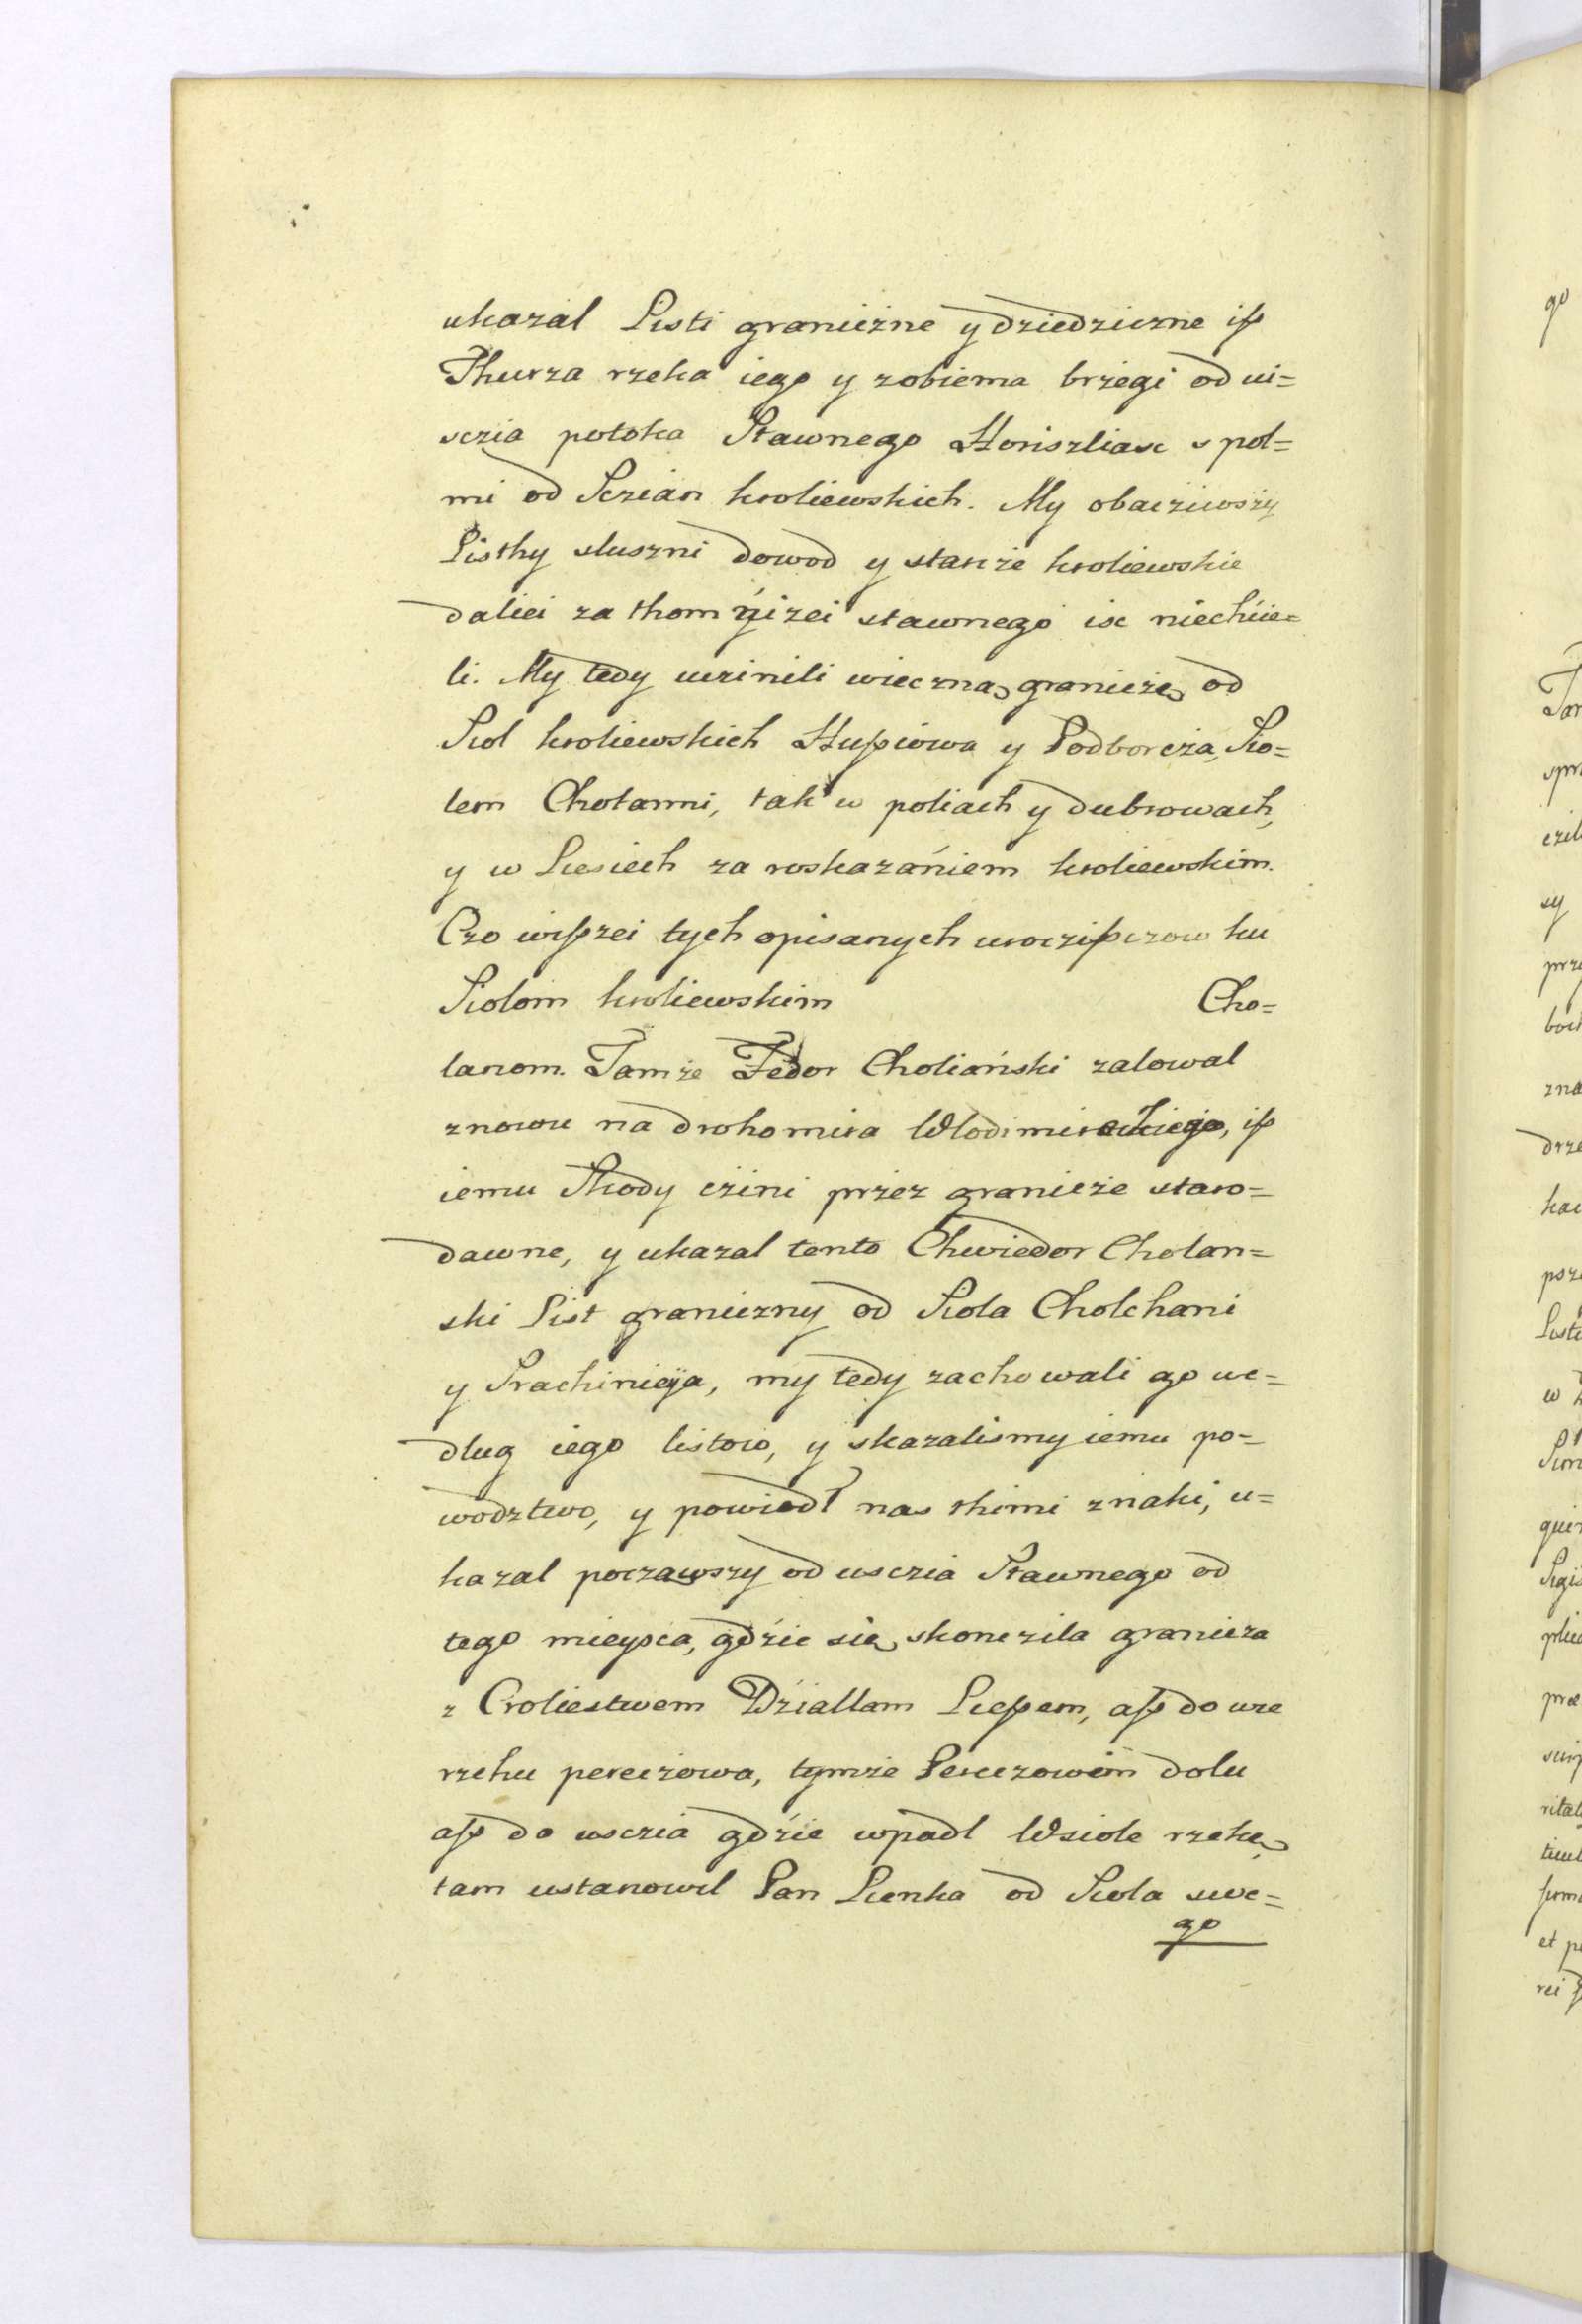 ukazal Listi graniczne y dziedziczne iß
Thurza rzeka iego y zobiema brzegi od ui=
sczia potoka Stawnego Horiszliasc s pol=
mi od Sczian kroliewskich. My obacziwszy
Listhy sluszni dowod y starcze kroliewskie
daliei za thom yizei stawnego isc niechcie=
li. My tedy uczinili wieczną granicze od
Siol kroliewskich Hußiowa y Podborcza, Sio=
lem Cholanmi, tak w poliach y dubrowach,
y w Liesiech za roskazaniem kroliewskim.
Czo wißzei tych opisanych uroczißczow ku
Siolom kroliewskim Cho=
lanom. Tamze Fedor Choliański zalowal
znowu na drohomira Wlodimirskiego, iß
iemu Skody czini przez granicze staro=
dawne, y ukazal tento Chwiedor Cholan=
ski List graniczny od Siola Cholchani
y Srachinieÿa, my tedy zachowali go we=
dlug iego listow, y skazalismy iemu po=
wodztwo, y powiodl nas thimi znaki, u=
kazal począwszy od usczia Stawnego od
tego mieysca, gdzie się skonczila granicza
z Croliestwem Działlam Ließem, aß do uze
rzeku pereczowa, tymze Pereczowem dolu
aß do usczia gdzie wpadl Wsiole rzekę
tam ustanowil Pan Lienka od Siola swe=
go